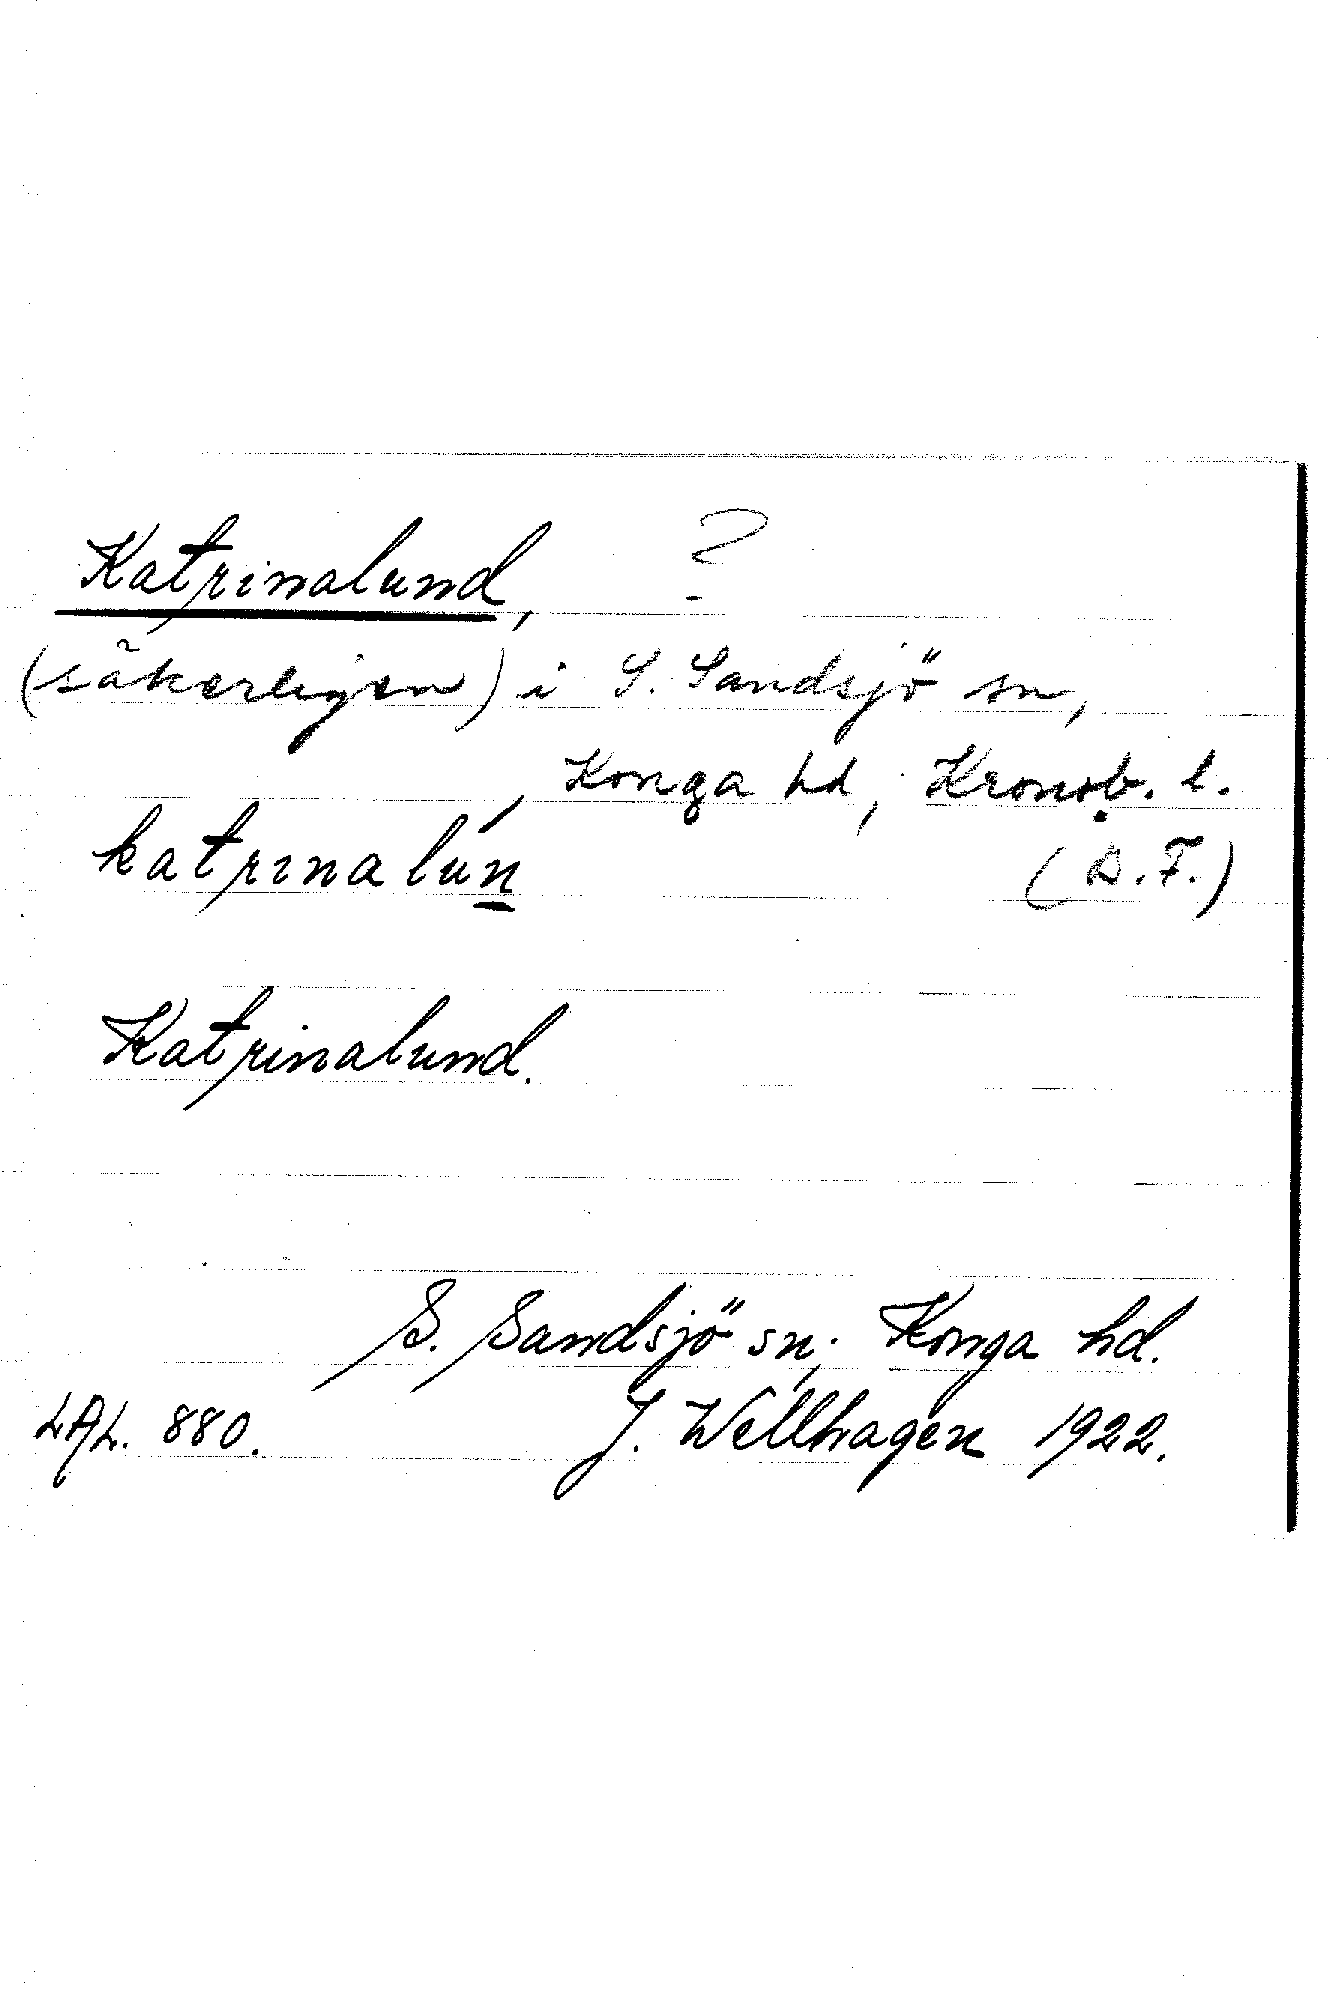 Katrinalund, ?
(säkerligen) i S. Sandsjö sn,
Konga hd, Kronob. l.
katrınalún (D.F.)
Katrinalund.
S. Sandsjö sn, Konga hd.
LAL. 880. J. Wellhagen 1922.